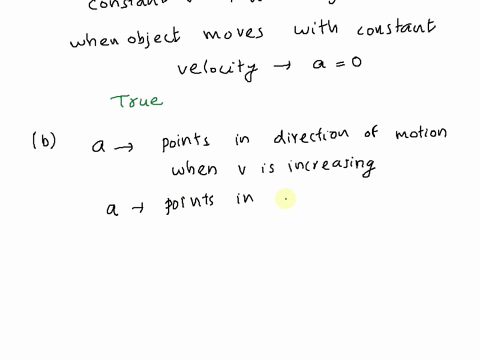 constant
when object moves with constant
velocity → a = 0
True
(b) a → points in direction of motion
when v is increasing
a → points in